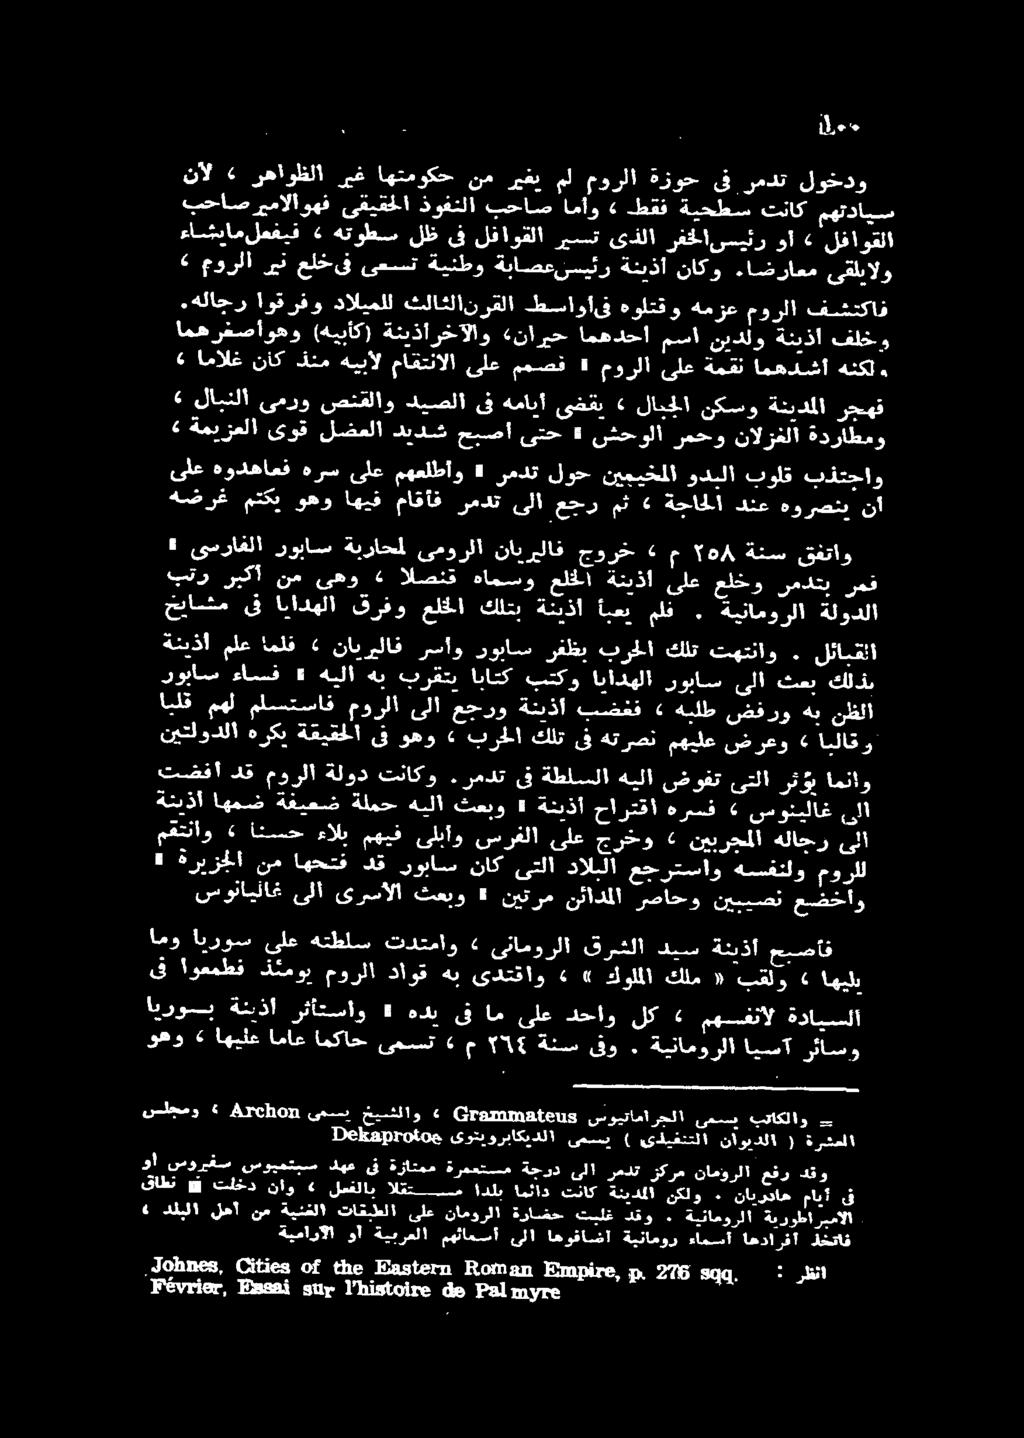 ودخول تدمر فى حوزة الروم لم يغير من حكومتها غير الظواهر ، لأن
سيادتهم كانت سطحية فقط ، وأما صاحب النفوذ الحقيقى فهو الأمير صاحب
القوافل ، أو رئيس الخفر الذى تسير القوافل فى ظل سطوته ، فيفعل مايشاء
ولايلقى معارضا . وكان أذينة رئيس عصابة وطنية تسعى فى خلع نير الروم ،
فاكتشف الروم عزمه وقتلوه فى أواسط القرن الثالث للميلاد وفرقوا رجاله .
وخلف أذينة ولدين اسم أحدهما حيران ، والآخر أذينة (كأبيه) وهو أصغرهما
ولكنه أشدهما نقمة على الروم فصمم على الانتقام لأبيه منذ كان غلاما ،
فهجر المدينة وسكن الجبال ، يقضى أيامه فى الصيد والقنص ورمى النبال ،
ومطاردة الغزلان وحمر الوحش حتى أصبح شديد العضل قوى العزيمة ،
واجتذب قلوب البدو المخيمين حول تدمر وأطلعهم على سره فعاهدوه على
أن ينصروه عند الحاجة ، ثم رجع الى تدمر فأقام فيها وهو يكتم غرضه
واتفق سنة ٢٥٨ م ، خروج فاليريان الرومى لمحاربة سابور الفارسى
فمر بتدمر وخلع على أذينة الخلع وسماه قنصلا ، وهى من أكبر رتب
الدولة الرومانية . فلم يعبأ أذينة بتلك الخلع وفرق الهدايا فى مشايخ
القبائل . وانتهت تلك الحرب بظفر سابور وأسر فاليريان ، فلما علم أذينة
بذلك بعث الى سابور الهدايا وكتب كتابا يتقرب به اليه فساء سابور
الظن به ورفض طلبه ، فغضب أذينة ورجع الى الروم فاستسلم لهم قلبا
وقالبا ، وعرض عليهم نصرته فى تلك الحرب ، وهو فى الحقيقة يكره الدولتين
وانما يؤثر التى تفوض اليه السلطة فى تدمر . وكانت دولة الروم قد أفضت
الى غالينوس ، فسره اقتراح أذينة وبعث اليه حملة ضعيفة ضمها أذينة
الى رجاله المجربين ، وخرج على الفرس وأبلى فيهم بلاء حسنا ، وانتقم
للروم ولنفسه واسترجع البلاد التى كان سابور قد فتحها من الجزيرة
وأخضع نصيبين وحاصر المدائن مرتين وبعث الأسرى الى غاليانوس
فأصبح أذينة سيد الشرق الرومانى ، وامتدت سلطته على سوريا وما
يليها ، ولقب « ملك الملوك » ، واقتدى به قواد الروم يومئذ فطمعوا فى
السيادة لأنفسهم ، كل واحد على ما فى يده واستأثر أذينة بسوريا
وسائر آسيا الرومانية . وفى سنة ٢٦٤ م ، تسمى حاكما عاما عليها ، وهو
= والكاتب يسمى الجراماتيوس Grammateus ، والشيخ يسمى Archon ، ومجلس
العشرة ( الديوان التنفيذى ) يسمى الديكابرويتوى Dekaprotoe
وقد رفع الرومان مركز تدمر الى درجة مستعمرة ممتازة فى عهد سبتميوس سفيروس أو
فى أيام هادريان . ولكن المدينة كانت دائما بلدا مستقلا بالفعل ، وان دخلت نطاق
الامبراطورية الرومانية . وقد غلبت حضارة الرومان على الطبقات الغنية من أهل البلد ،
فاتخذ أفرادها أسماء رومانية أضافوها الى أسمائهم العربية أو الآرامية
انظر : Johnes, Cities of the Eastern Roman Empire, p. 276 sqq.
Février, Essai sur l'histoire de Palmyre